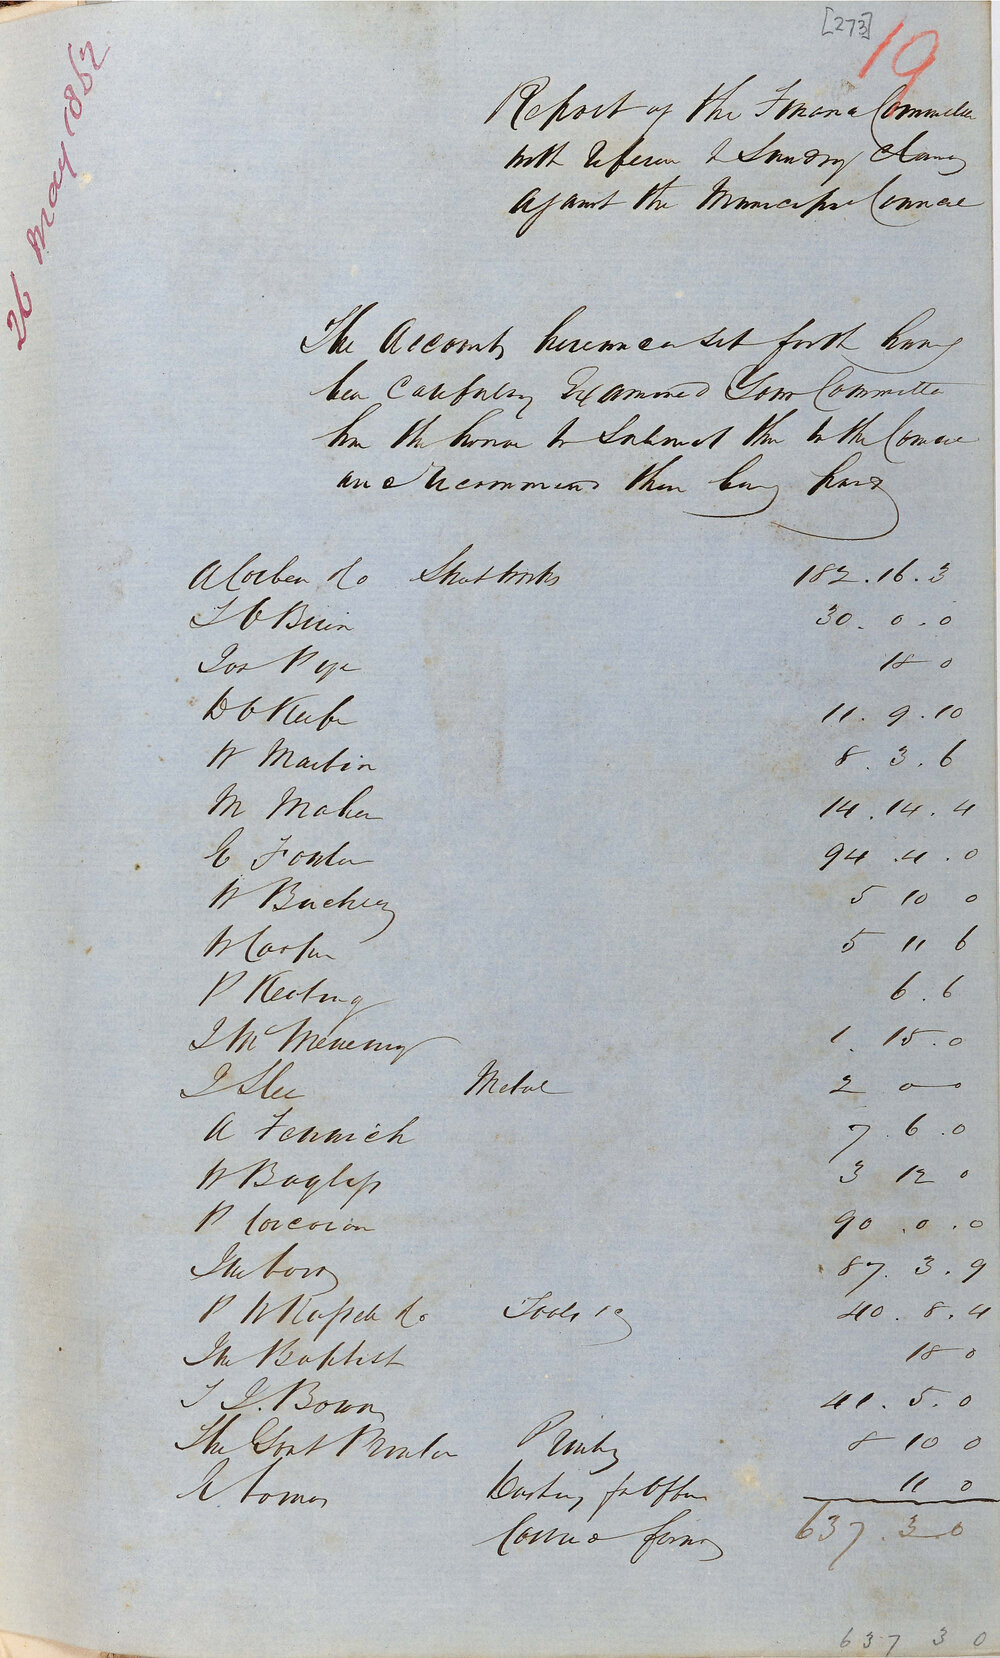 [273]
19
26 May 1862
Report of the Finance Committee
with reference to Sundry Claims
against the Municipal Council
The Accounts hereunder set forth having
been carefully Examined Your Committee
have the honor to submit them to the Council
and recommend them being paid
A Corben & Co 182.16.3
T O Brien 30.0.0
Jas Pye 18 0
D O Keefe 11.9.10
W Martin 8.3.6
M Maher 14.14.4
E Fowler 94.4.0
W Buckley 5 10 0
W Cooper 5 11 6
P Keating 6.6
J McMenemy 1.15.0
J Slee Metal 2 0 0
A Fenwick 7.6.0
W Baylis 3 12 0
P Corcoran 90.0.0
Jno 87.3.9
P N Russell & Co Tools &c 40.8.4
Jno Baptist 18 0
T J. Bown 41.5.0
The Govt Printer Printing 8 10 0
Dusting for Offices 11 0
Carried forwd 637.3.0
637 3 0